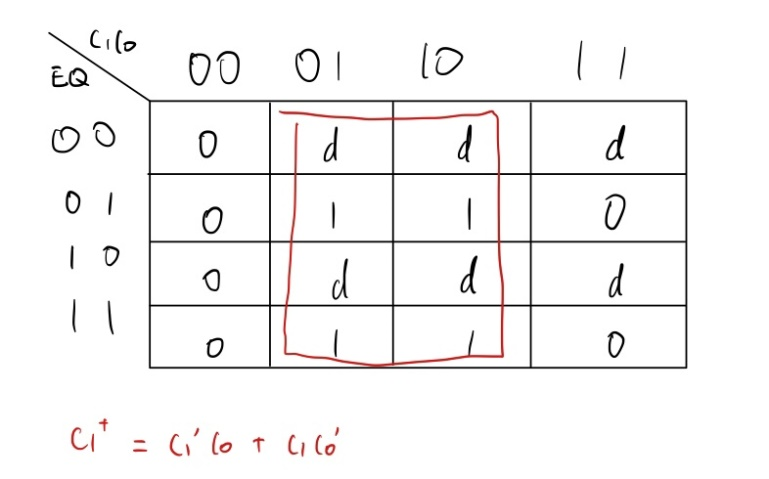 C₁C₀
EQ 00 01 10 11
00 0 d d d
01 0 1 1 0
10 0 d d d
11 0 1 1 0
C₁⁺ = C₁'C₀ + C₁C₀'